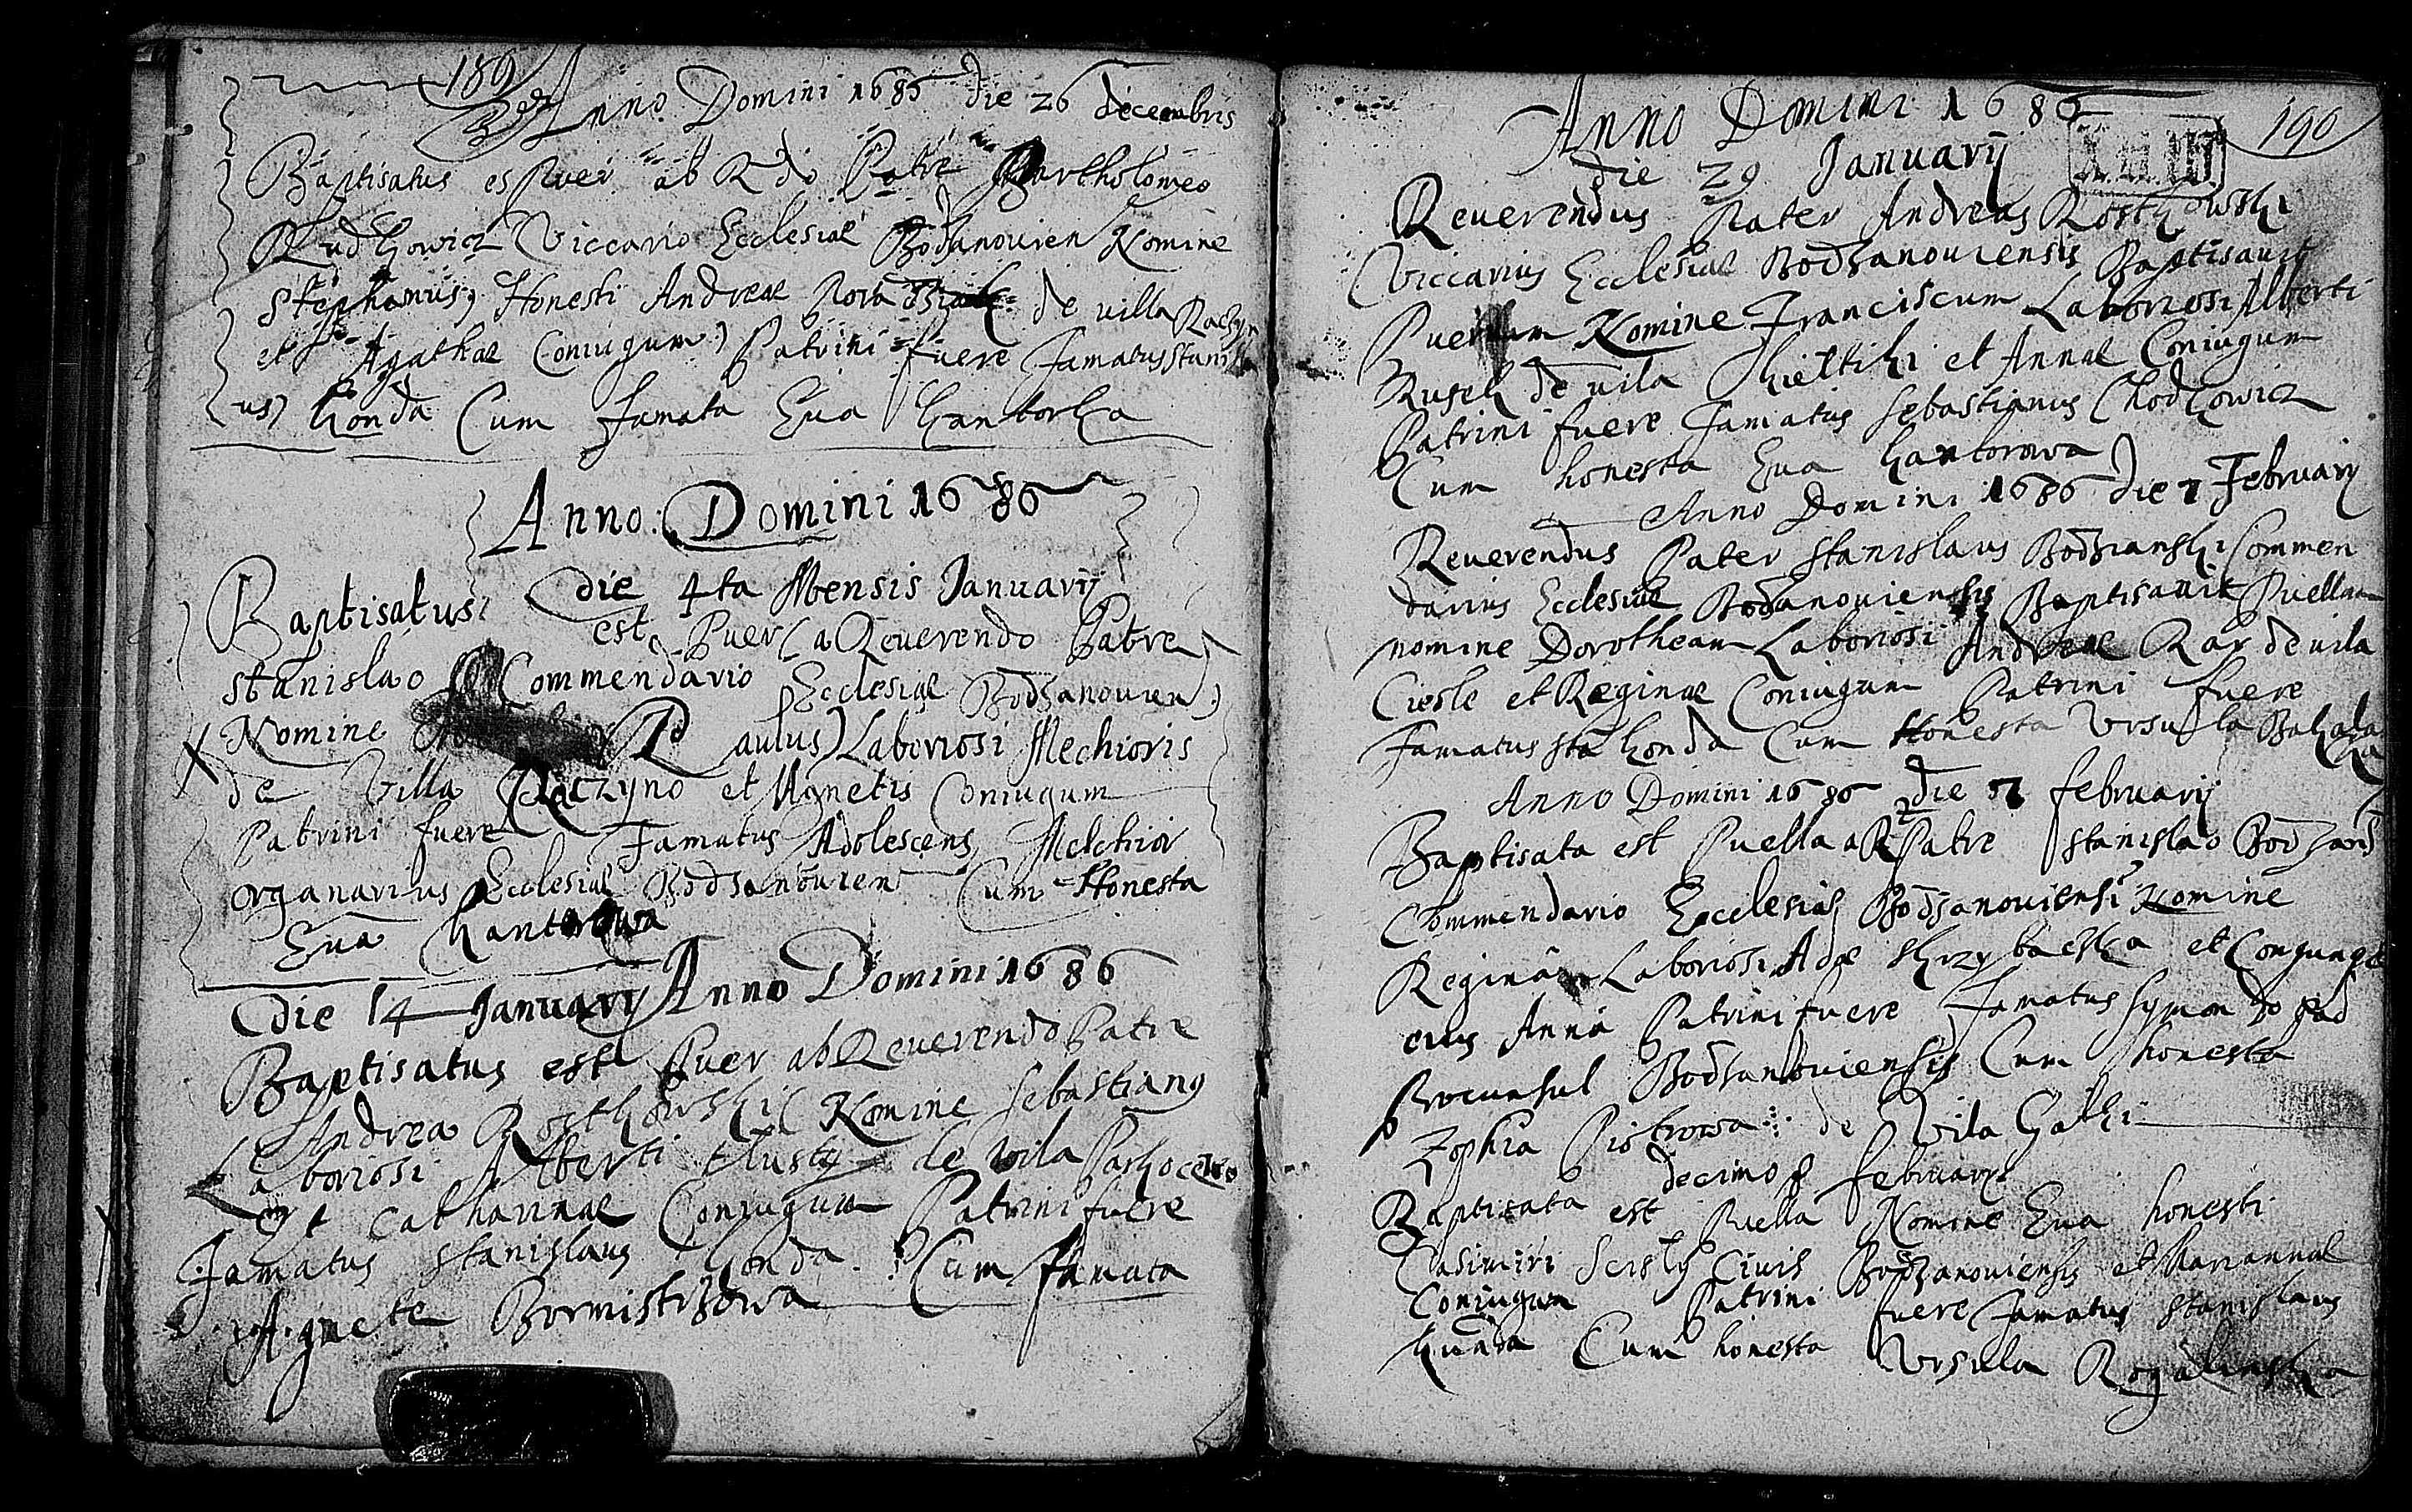 189
Anno Domini 1685 die 26 decembris
Baptisatus es Puer ab Rdo Patre Bartholomeo
Rudkowicz Viccario Ecclesiae Bodzanouien Nomine
Stephanus, Honesti Andreae de villa Raczyn
et Agathae Coniugum) Patrini fuere Famatus Stanisla
us) Konda Cum Famata Eua Kantorka
Anno: Domini 1686
die 4ta Mensis Januarÿ
Baptisatus est Puer (a Reuerendo Patre
Stanislao Commendario Ecclesiae Bodzanouien)
Nomine Paulus) Laboriosi Mechioris
de Villa Raczyno et Agnetis Coniugum
Patrini fuere Famatus Adolescens Melchior
organarius Ecclesiae Bodzanouien Cum Honesta
Eua Kantorowa
die 14 Januarÿ Anno Domini 1686
Baptisatus est Puer ab Reuerendo Patre
Andrea Rostkowski (Nomine Sebastiang
Laboriosi Alberti tlusty de vila Parkocewo
et Catharinae Coniugum Patrini fuere
Famatus Stanislaus Konda. Cum Famata
Agnete Bormistrzowa
190
Anno Domini 1686
die 29 Januarÿ
Reuerendus Pater Andreas Rostkowski
Viccarius Ecclesiae Bodzanouiensis Baptisauit
Puerum Nomine Franciscum Laboriosi Alberti
Rusek de vila Kieltiki et Annae Coniugum
Patrini fuere Famatus Sebastianus Chodkowicz
Cum honesta Eua Kantorowa)
Anno Domini 1686 die 7 Februarÿ
Reuerendus Pater Stanislaus Bodzianski Commen
darius Ecclesiae Bodzanouiensis Baptisauit Puellam
nomine Dorotheam Laboriosi Andreae Ray de vila
Ciesle et Reginae Coniugum Patrini fuere
Famatus Sta Konda Cum Honesta Vrsulla
Anno Domini 1686 die 7 februarÿ
Baptisata est Puella a R Patre Stanislao Bodzans
Commendario Ecclesiae Bodzanouiensi Nomine
Reginam Laboriosi Adae et Congunge
eius Anna Patrini fuere Famatus Symon
Proconsul Bodzanouiensis Cum honesta
Zophia Piotrowa de Vila Galki
decimo 8 februarÿ
Baptisata est Puella Nomine Eua honesti
Casimiri Scisly Ciuis Bodzanouiensis et Mariannae
Coniugum Patrini fuere Famatus Stanislaus
Kunda Cum honesta Vrsulla Rogalinska